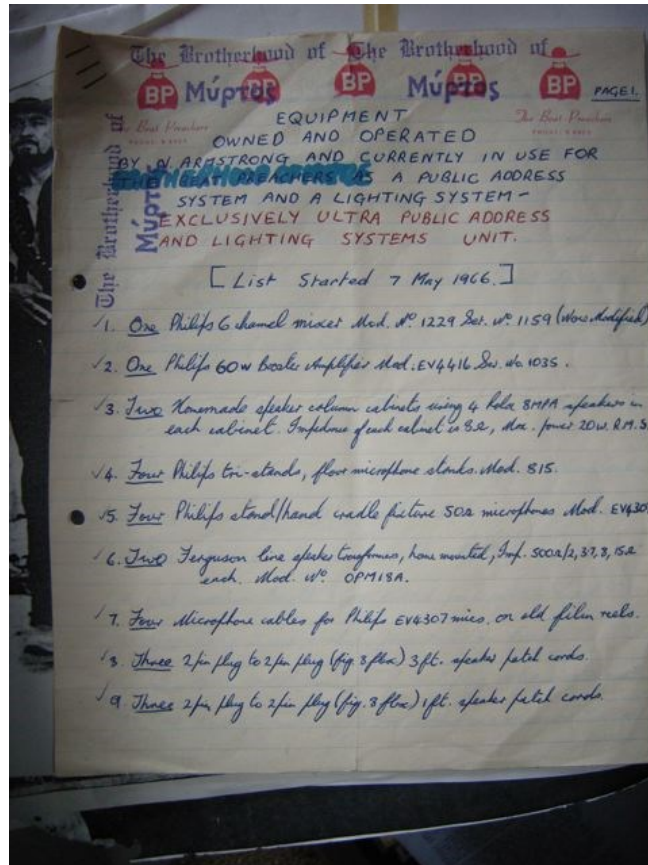 The Brotherhood of The Brotherhood of
BP Μύρτος BP BP Μύρτος BP BP
PAGE 1.
The Beat Preachers The Beat Preachers
The Brotherhood of
Μύρτος
EQUIPMENT
OWNED AND OPERATED
BY N. ARMSTRONG AND CURRENTLY IN USE FOR
THE BEAT PREACHERS AS A PUBLIC ADDRESS
SYSTEM AND A LIGHTING SYSTEM –
EXCLUSIVELY ULTRA PUBLIC ADDRESS
AND LIGHTING SYSTEMS UNIT.
[List Started 7 May 1966.]
✓1. One Philips 6 channel mixer Mod. Nº 1229 Ser. Nº 1159 (Modified)
✓2. One Philips 60W Booster Amplifier Mod. EV4416 Ser. No. 1035.
✓3. Two Homemade speaker column cabinets using 4 Rola 8MPA speakers in
each cabinet. Impedance of each cabinet is 8Ω, Max. power 20W. R.M.S.
✓4. Four Philips tri-stands, floor microphone stands. Mod. 815.
✓5. Four Philips stand/hand cradle fixture 50Ω microphones Mod. EV4307
✓6. Two Ferguson line speaker transformers, home mounted, Imp. 500Ω/2, 3.7, 8, 15Ω
each. Mod. Nº OPM18A.
✓7. Four Microphone cables for Philips EV4307 mics. on old film reels.
✓8. Three 2 pin plug to 2 pin plug (fig. 8 flex) 3ft. speaker patch cords.
✓9. Three 2 pin plug to 2 pin plug (fig. 8 flex) 1ft. speaker patch cords.